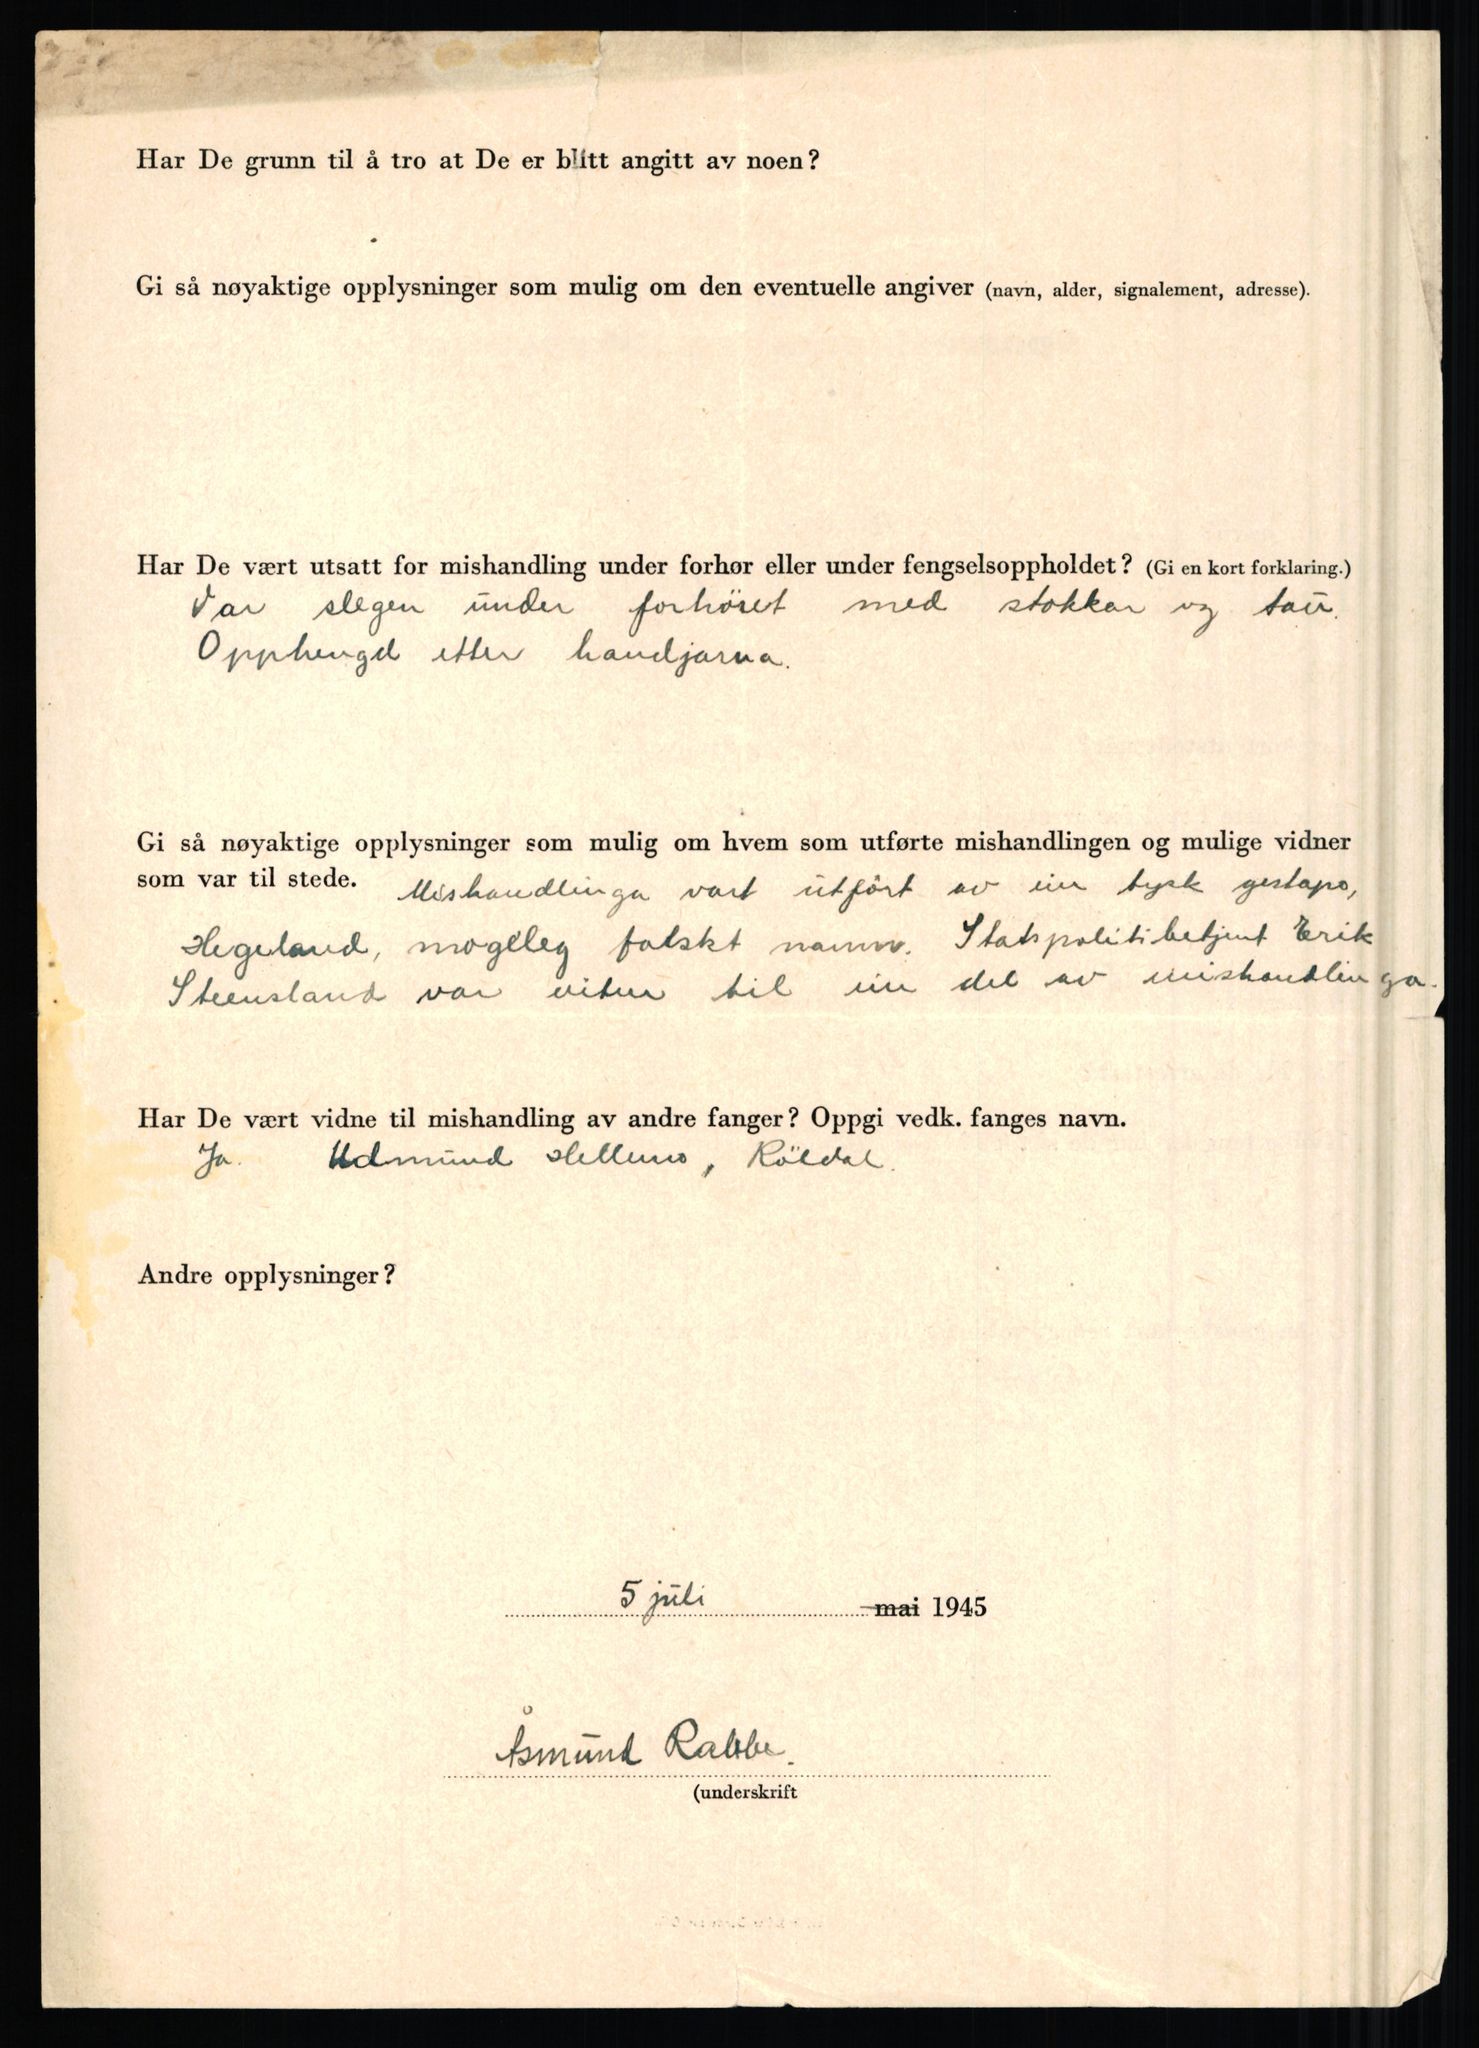 Har De grunn til å tro at De er blitt angitt av noen?
Gi så nøyaktige opplysninger som mulig om den eventuelle angiver (navn, alder, signalement, adresse).
Har De vært utsatt for mishandling under forhør eller under fengselsoppholdet? (Gi en kort forklaring.)
Var slegen under forhöret med stokkar og tau.
Opphengd etter handjarna.
Gi så nøyaktige opplysninger som mulig om hvem som utførte mishandlingen og mulige vidner
som var til stede. Mishandlinga vart utfört av ein tysk gestapo,
Hegeland, mogeleg falskt namn. Statspolitibetjent Erik
Steensland var vitne til ein del av mishandlinga.
Har De vært vidne til mishandling av andre fanger? Oppgi vedk. fanges navn.
Ja. Udmund Helleno, Röldal.
Andre opplysninger?
5 juli mai 1945
Åsmund Rabbe.
(underskrift